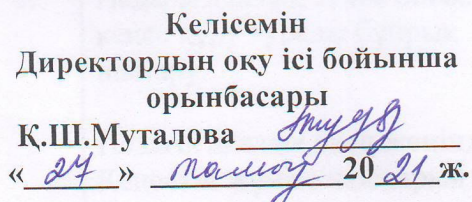 Келісемін
Директордың оқу ісі бойынша
орынбасары
Қ.Ш.Муталова
«27» тамыз 2021ж.